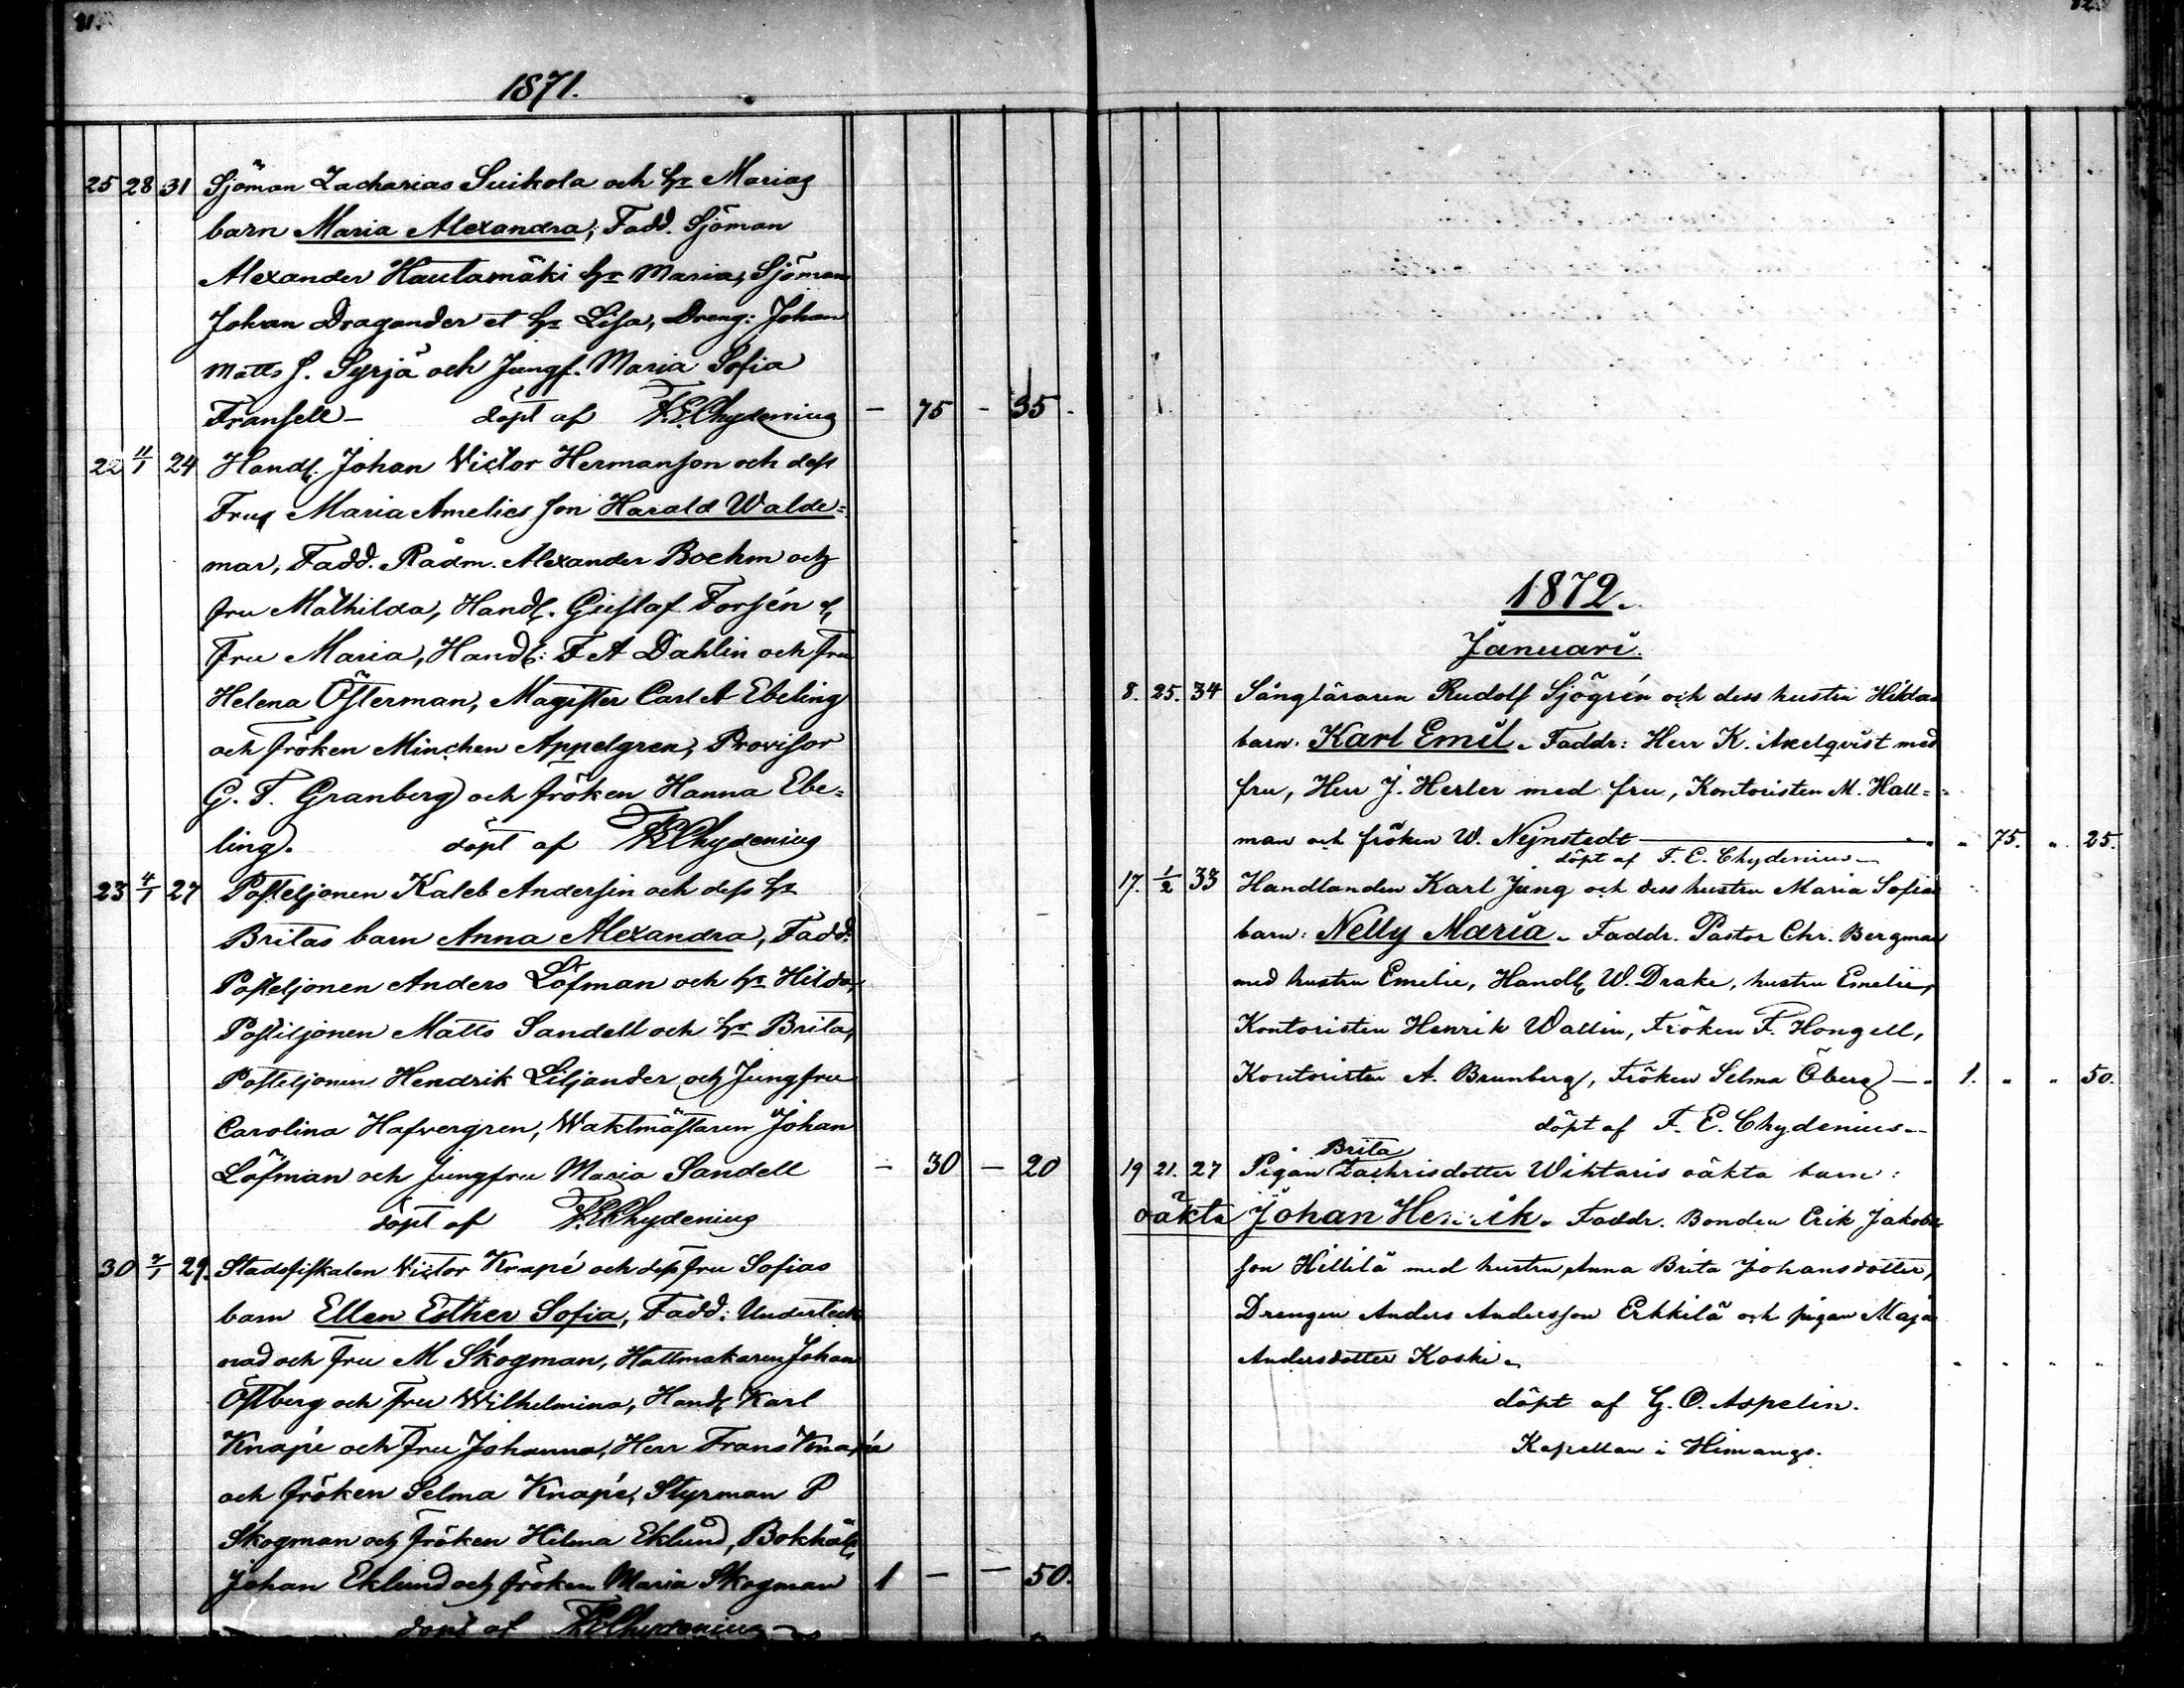 81.
1871.
25 28 31 Sjöman Zacharias Suikola och hr Marias
barn Maria Alexandra, Fadd. Sjöman
Alexander Hautamäki hr Maria, Sjöman
Johan Dragander et hr Lisa, Dreng: Johan
Matts s. Syrjä och Jungf. Maria Sofia
Fransell — döpt af F.E.Chydenius — 75 — 35.
22 11/1 24 Handl. Johan Victor Hermanson och dess
Frus Maria Amelies son Harald Walde=
mar, Fadd. Rådm. Alexander Boehm och
fru Mathilda, Handl. Gustaf Forsén &
Fru Maria, Handl: F A Dahlin och Fru
Helena Österman, Magister Carl A Ebeling
och Fröken Minchen Appelgren, Provisor
G. F. Granberg och Fröken Hanna Ebe=
ling. döpt af F.E.Chydenius
23 4/1 27 Posteljonen Kaleb Andersin och dess hr
Britas barn Anna Alexandra, Fadd:
Posteljonen Anders Löfman och hr Hilda,
Postiljonen Matts Sandell och hr Brita,
Posteljonen Hendrik Liljander och Jungfru
Carolina Hafvergren, Waktmästaren Johan
Löfman och Jungfru Maria Sandell — 30 — 20
döpt af F.E.Chydenius
30 7/1 29. Stadsfiskalen Victor Knapé och dess fru Sofias
barn Ellen Esther Sofia, Fadd: Underteck
nad och Fru M Skogman, Hattmakaren Johan
Östberg och Fru Wilhelmina, Handl Karl
Knapé och Fru Johanna, Herr Frans Knapé
och Fröken Selma Knapé, Styrman P
Skogman och Fröken Hilma Eklund, Bokhål.
Johan Eklund och Fröken Maria Skogman 1 — — 50.
döpt af F.E.Chydenius —
82.
1872.
Januari.
8. 25. 34 Sångläraren Rudolf Sjögrén och dess hustru Hildas
barn. Karl Emil. Faddr: Herr K. Axelqvist med
fru, Herr J. Herler med fru, Kontoristen M. Hall=
man och fröken W. Nejnstedt — " 75. " 25.
döpt af F. E. Chydenius —
17. 1/2 33 Handlanden Karl Jung och dess hustru Maria Sofias
barn: Nelly Maria. Faddr. Pastor Chr. Bergman
med hustru Emelie, Handl W. Drake, hustru Emelie,
Kontoristen Henrik Wallin, Fröken F. Hongell,
Kontoristen A. Brunberg, Fröken Selma Öberg — 1. " " 50.
döpt af F. E. Chydenius —
Brita
19 21. 27 Pigan Zachrisdotter Wihtaris oäkta barn:
oäkta Johan Henrik. Faddr. Bonden Erik Jakobs
son Hillilä med hustru Anna Brita Johansdotter,
Drengen Anders Andersson Erkkilä och pigan Maja
Andersdotter Koski. " " " "
döpt af G. O. Aspelin.
Kapellan i Himango.